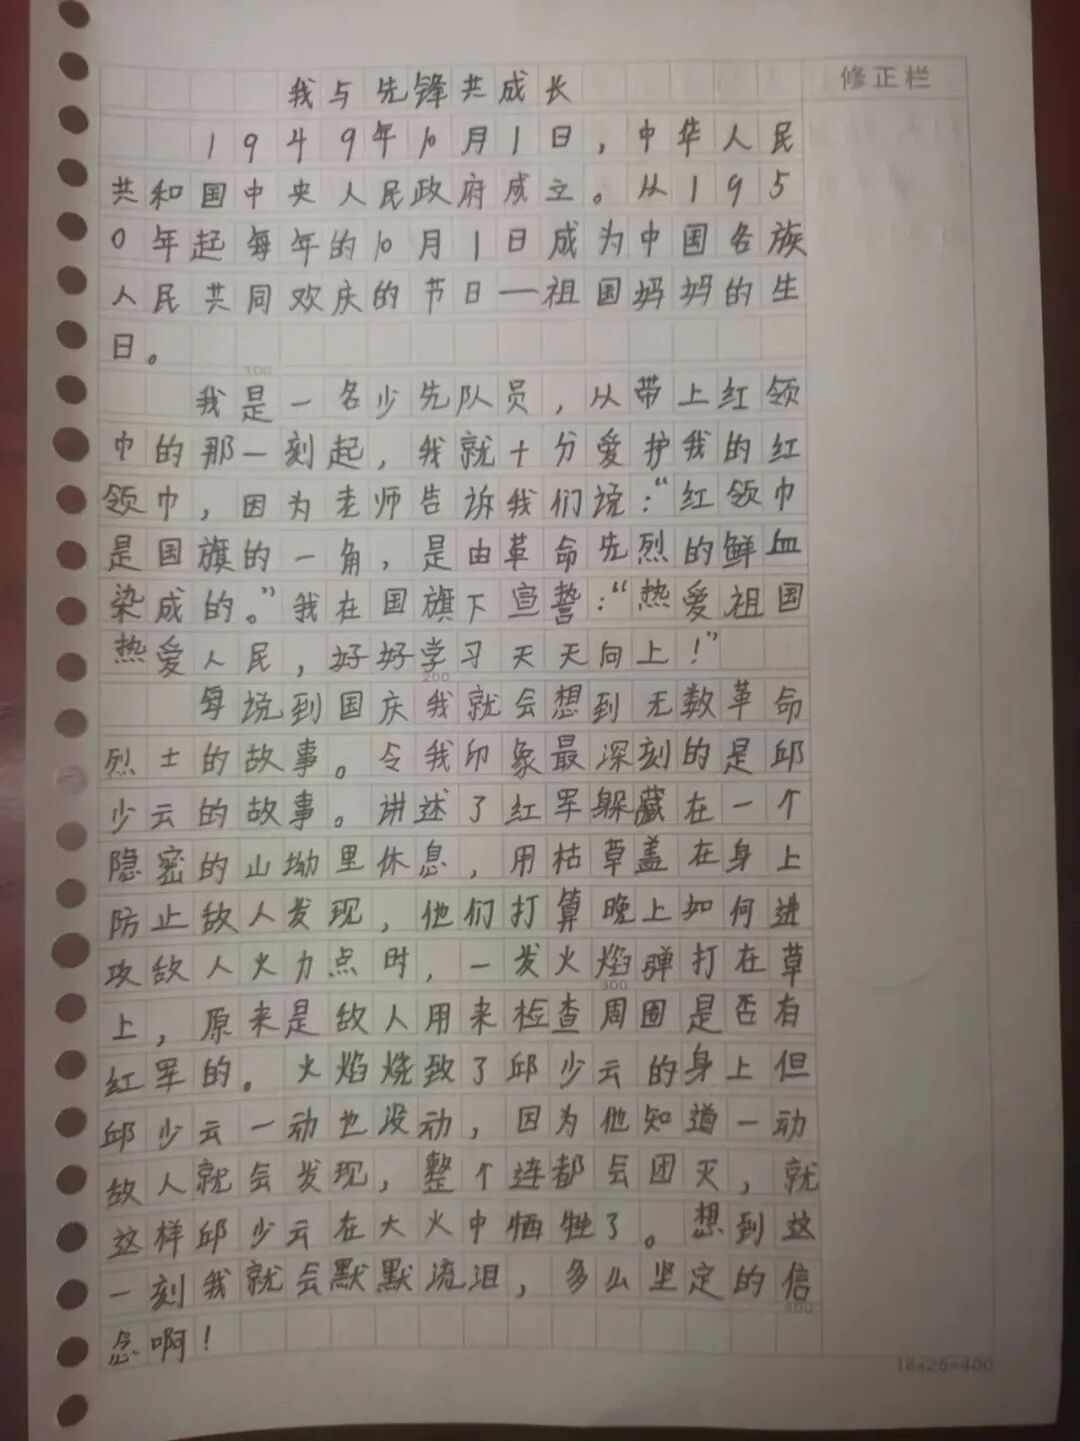 修正栏
我与先锋共成长
1949年10月1日，中华人民
共和国中央人民政府成立。从195
0年起每年的10月1日成为中国各族
人民共同欢庆的节日—祖国妈妈的生
日。
100
我是一名少先队员，从带上红领
巾的那一刻起，我就十分爱护我的红
领巾，因为老师告诉我们说：“红领巾
是国旗的一角，是由革命先烈的鲜血
染成的。”我在国旗下宣誓：“热爱祖国
热爱人民，好好学习天天向上！”
200
每说到国庆我就会想到无数革命
烈士的故事。令我印象最深刻的是邱
少云的故事。讲述了红军躲藏在一个
隐密的山坳里休息，用枯草盖在身上
防止敌人发现，他们打算晚上如何进
攻敌人火力点时，一发火焰弹打在草
300
上，原来是敌人用来检查周围是否有
红军的。火焰烧致了邱少云的身上但
邱少云一动也没动，因为他知道一动
敌人就会发现，整个连都会团灭，就
这样邱少云在大火中牺牲了。想到这
一刻我就会默默流泪，多么坚定的信
400
念啊！
16×25=400